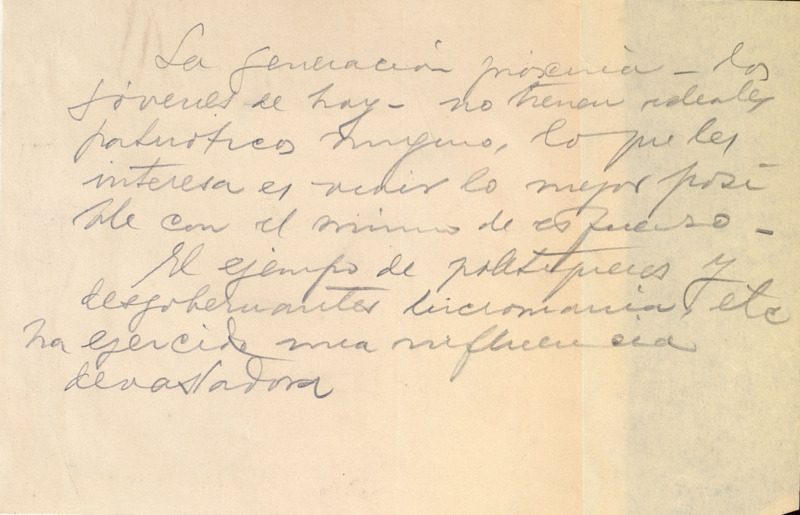 La generación próxima – los
jóvenes de hoy – no tienen ideales
patrióticos ninguno, lo que les
interesa es vivir lo mejor posi
ble con el minimo de esfuerzo –
El ejempo de politiqueros y
desgobernantes lucromania, etc
ha ejercido una influencia
devastadora